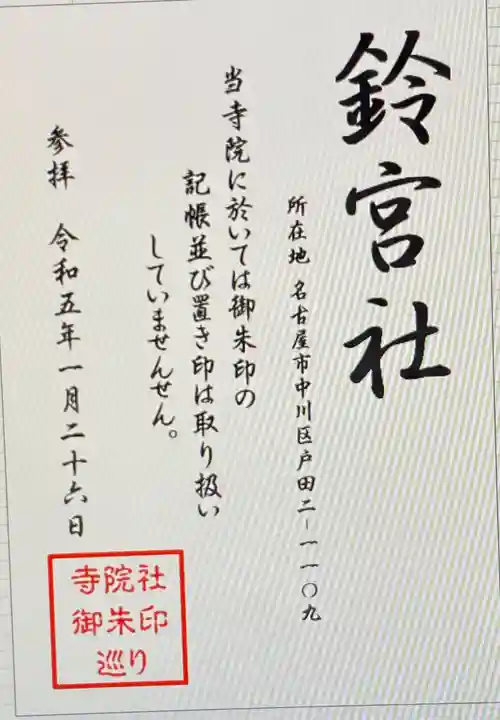 鈴宮社
所在地 名古屋市中川区戸田二ー一一〇九
当寺院に於いては御朱印の
記帳並び置き印は取り扱い
していませんせん。
参拝 令和五年一月二十六日
寺院社
御朱印
巡り